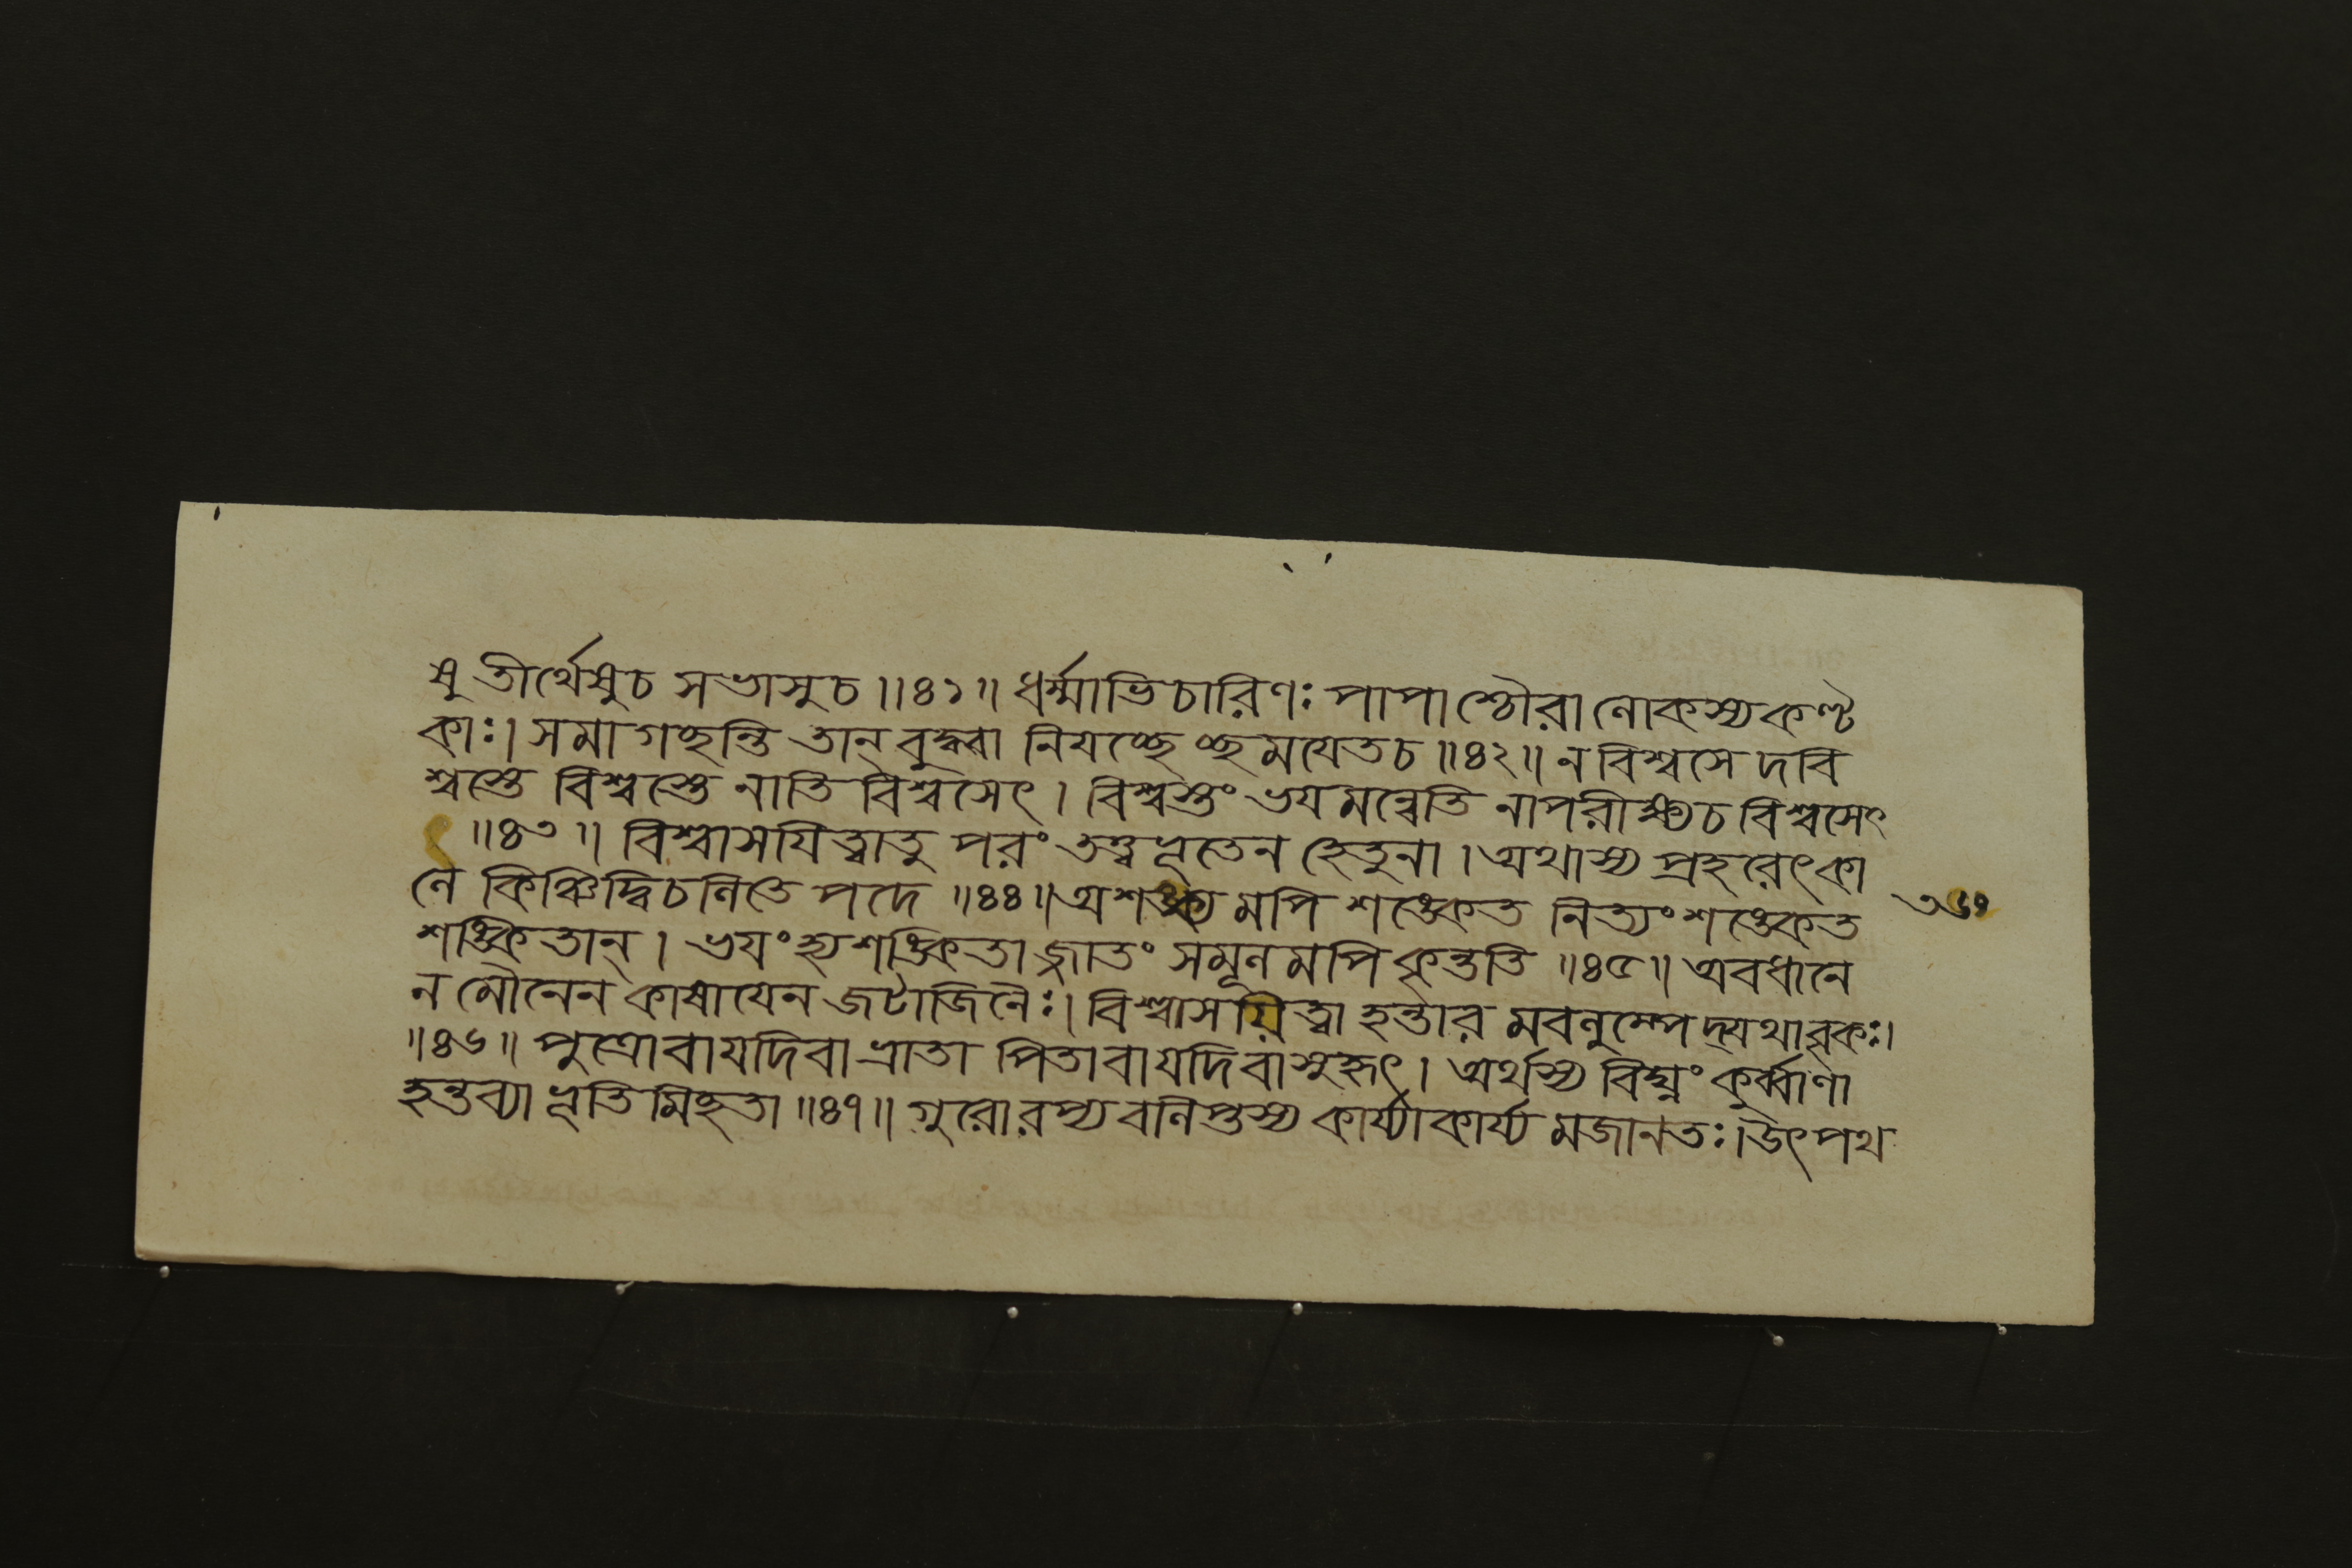 ষু তীর্থেষুচ সভাসুচ ॥৪১॥ ধর্ম্মাভিচারিণঃ পাপাশ্চৌরা লোকস্যকণ্ট
কাঃ। সমাগচ্ছন্তি তান্ বুদ্ধ্বা নিযচ্ছেচ্ছমযেতচ ॥৪২॥ ন বিশ্বসে দবি
শ্বস্তে বিশ্বস্তে নাতি বিশ্বসেৎ। বিশ্বস্তং ভযমন্বেতি নাপরীক্ষ্যচ বিশ্বসেৎ
॥৪৩॥ বিশ্বাসযিত্বাতু পরং তত্ত্বভূতেন হেতুনা। অথাস্য প্রহরেৎকা
লে কিঞ্চিদ্বিচলিতে পদে ॥৪৪॥ অশঙ্ক্যমপি শঙ্কেত নিত্যং শঙ্কেত
শঙ্কিতান্। ভযংহ্যশঙ্কিতাজ্জাতং সমূলমপি কৃন্ততি ॥৪৫॥ অবধানে
ন মৌনেন কাষাযেন জটাজিনৈঃ। বিশ্বাসয়িত্বা হন্তার মবলুম্পেদ্যথাবৃকঃ।
॥৪৬॥ পুত্রোবাযদিবা ভ্রাতা পিতাবাযদিবাসুহৃৎ। অর্থস্য বিঘ্নং কুর্ব্বাণা
হন্তব্যা ভূতিমিহতা ॥৪৭॥ গুরোরপ্যবলিপ্তস্য কার্য্যাকার্য্যমজানতঃ। উৎপথ
৩৬৭